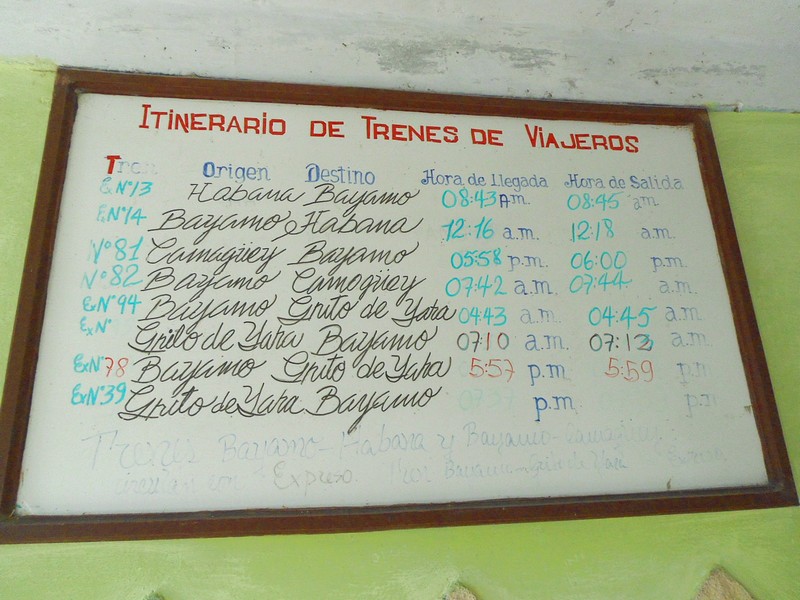 ITINERARIO DE TRENES DE VIAJEROS
Tren Origen Destino Hora de Llegada Hora de Salida
E Nº13 Habana Bayamo 08:43 Am. 08:45 am.
Nº14 Bayamo Habana 12:16 a.m. 12:18 a.m.
Nº81 Camagüey Bayamo 05:58 p.m. 06:00 p.m.
Nº82 Bayamo Camagüey 07:42 a.m. 07:44 a.m.
ExNº94 Bayamo Grito de Yara 04:43 a.m. 04:45 a.m.
ExNº Grito de Yara Bayamo 07:10 a.m. 07:12 a.m.
ExNº78 Bayamo Grito de Yara 5:57 p.m. 5:59 p.m.
ExNº39 Grito de Yara Bayamo p.m
Trenes Bayamo-Habana y Bayamo-Camagüey
con Expreso. Bayamo-Grito de Yara